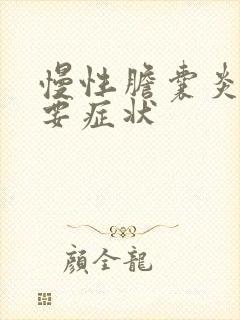 慢性膽囊炎
要症狀
顔全龍